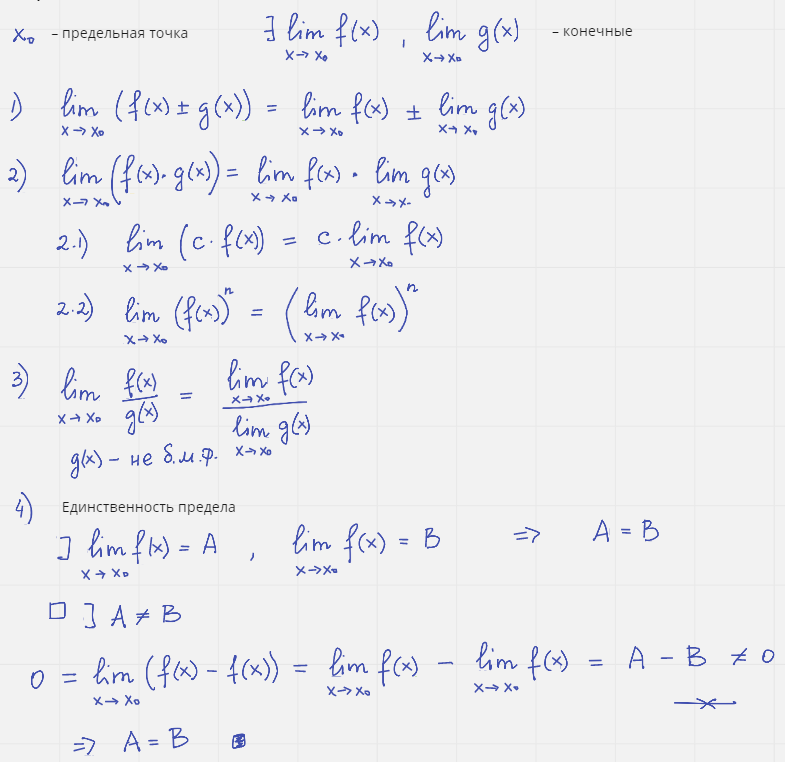 x₀ – предельная точка ∃ lim_{x→x₀} f(x) , lim_{x→x₀} g(x) – конечные
1) lim_{x→x₀} (f(x) ± g(x)) = lim_{x→x₀} f(x) ± lim_{x→x₀} g(x)
2) lim_{x→x₀} (f(x)·g(x)) = lim_{x→x₀} f(x) · lim_{x→x.} g(x)
2.1) lim_{x→x₀} (c·f(x)) = c·lim_{x→x₀} f(x)
2.2) lim_{x→x₀} (f(x))ⁿ = (lim_{x→x₀} f(x))ⁿ
3) lim_{x→x₀} f(x)/g(x) = lim_{x→x₀} f(x) / lim_{x→x₀} g(x)
g(x) – не б.м.ф.
4) Единственность предела
] lim_{x→x₀} f(x) = A , lim_{x→x₀} f(x) = B ⇒ A = B
□ ] A ≠ B
0 = lim_{x→x₀} (f(x) – f(x)) = lim_{x→x₀} f(x) – lim_{x→x₀} f(x) = A – B ≠ 0
⇒ A = B ■